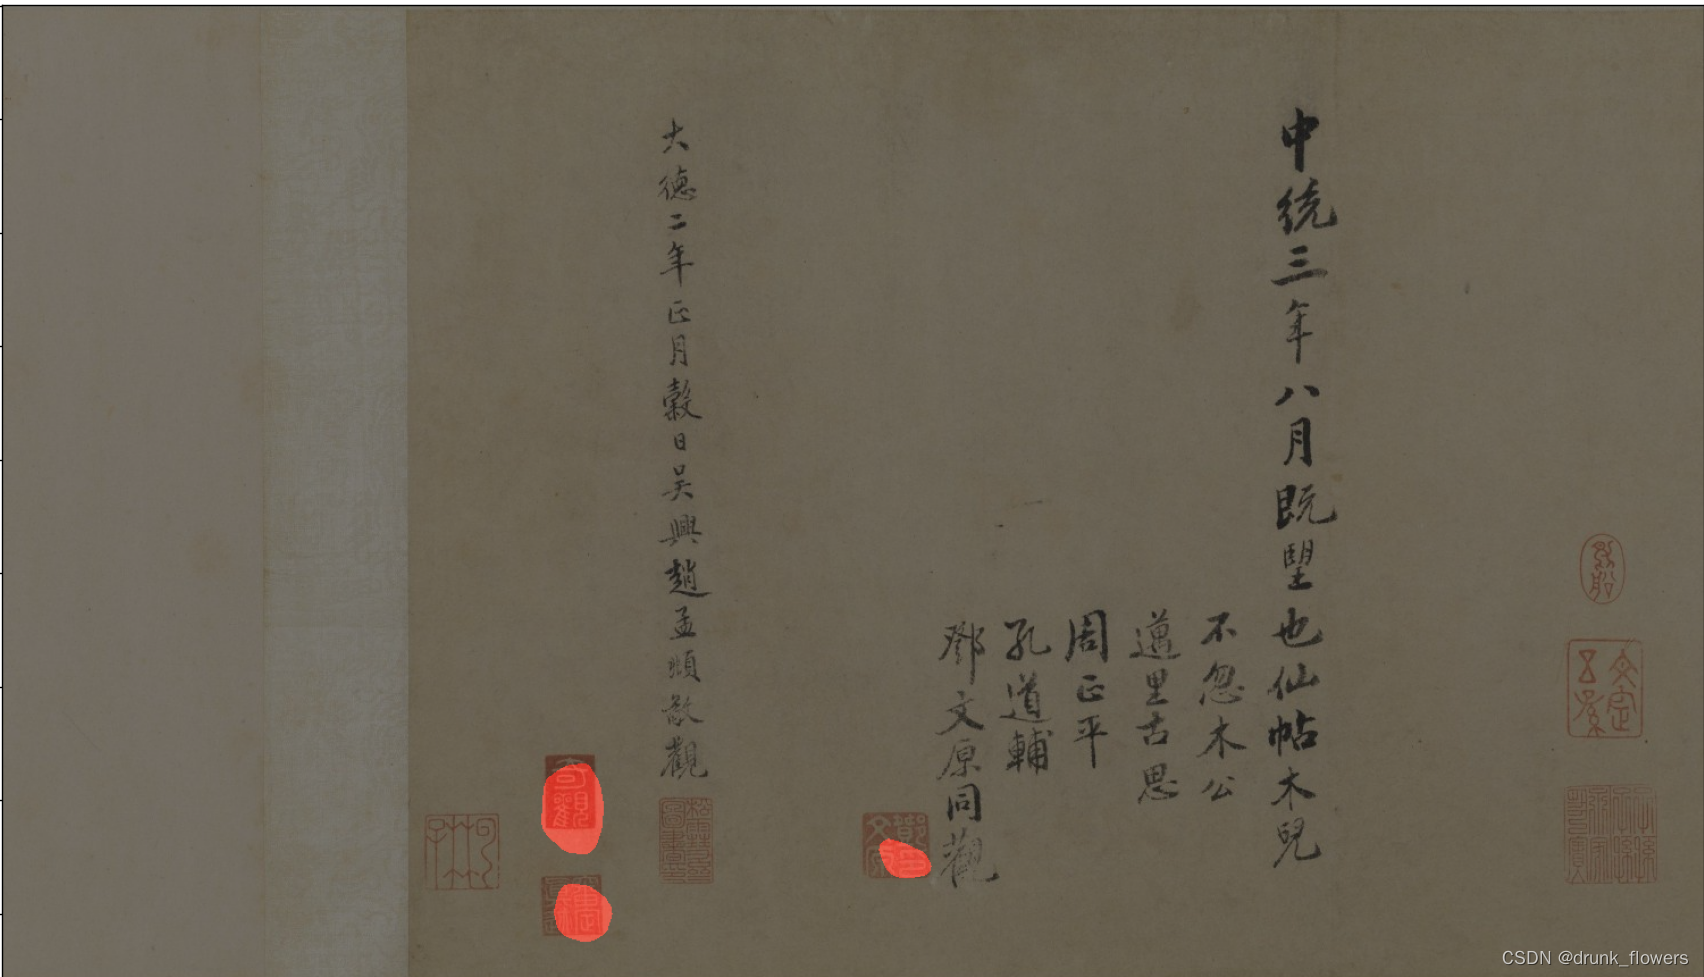 中統三年八月既望也仙帖木兒
不忽木公
邁里古思
周正平
孔道輔
鄧文原同觀
大德二年正月穀日吴興趙孟頫敬觀
奇觀
CSDN @drunk_flowers